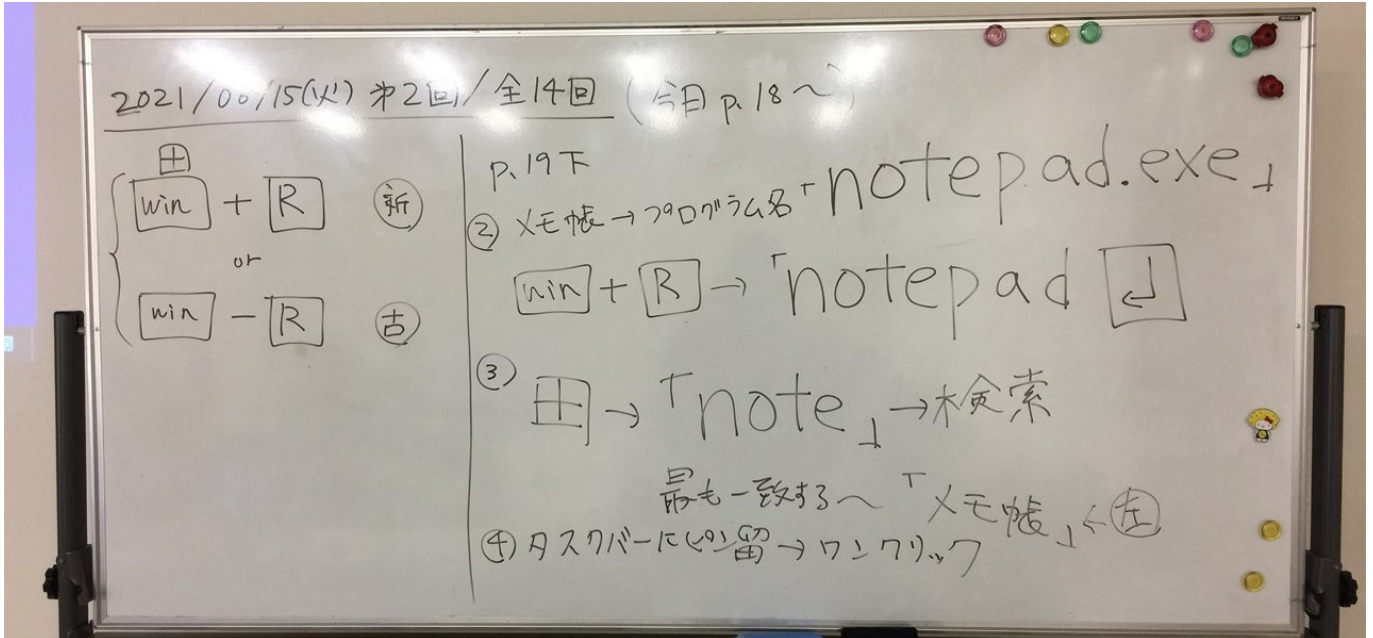 2021/06/15(火) 第2回/全14回 (今日 p.18〜)
田
win + R 新
or
win - R 古
p.19下
② メモ帳→プログラム名「notepad.exe」
win + R →「notepad ↲
③ 田→「note」→検索
最も一致する〜「メモ帳」←左
④ タスクバーにピン留→ワンクリック